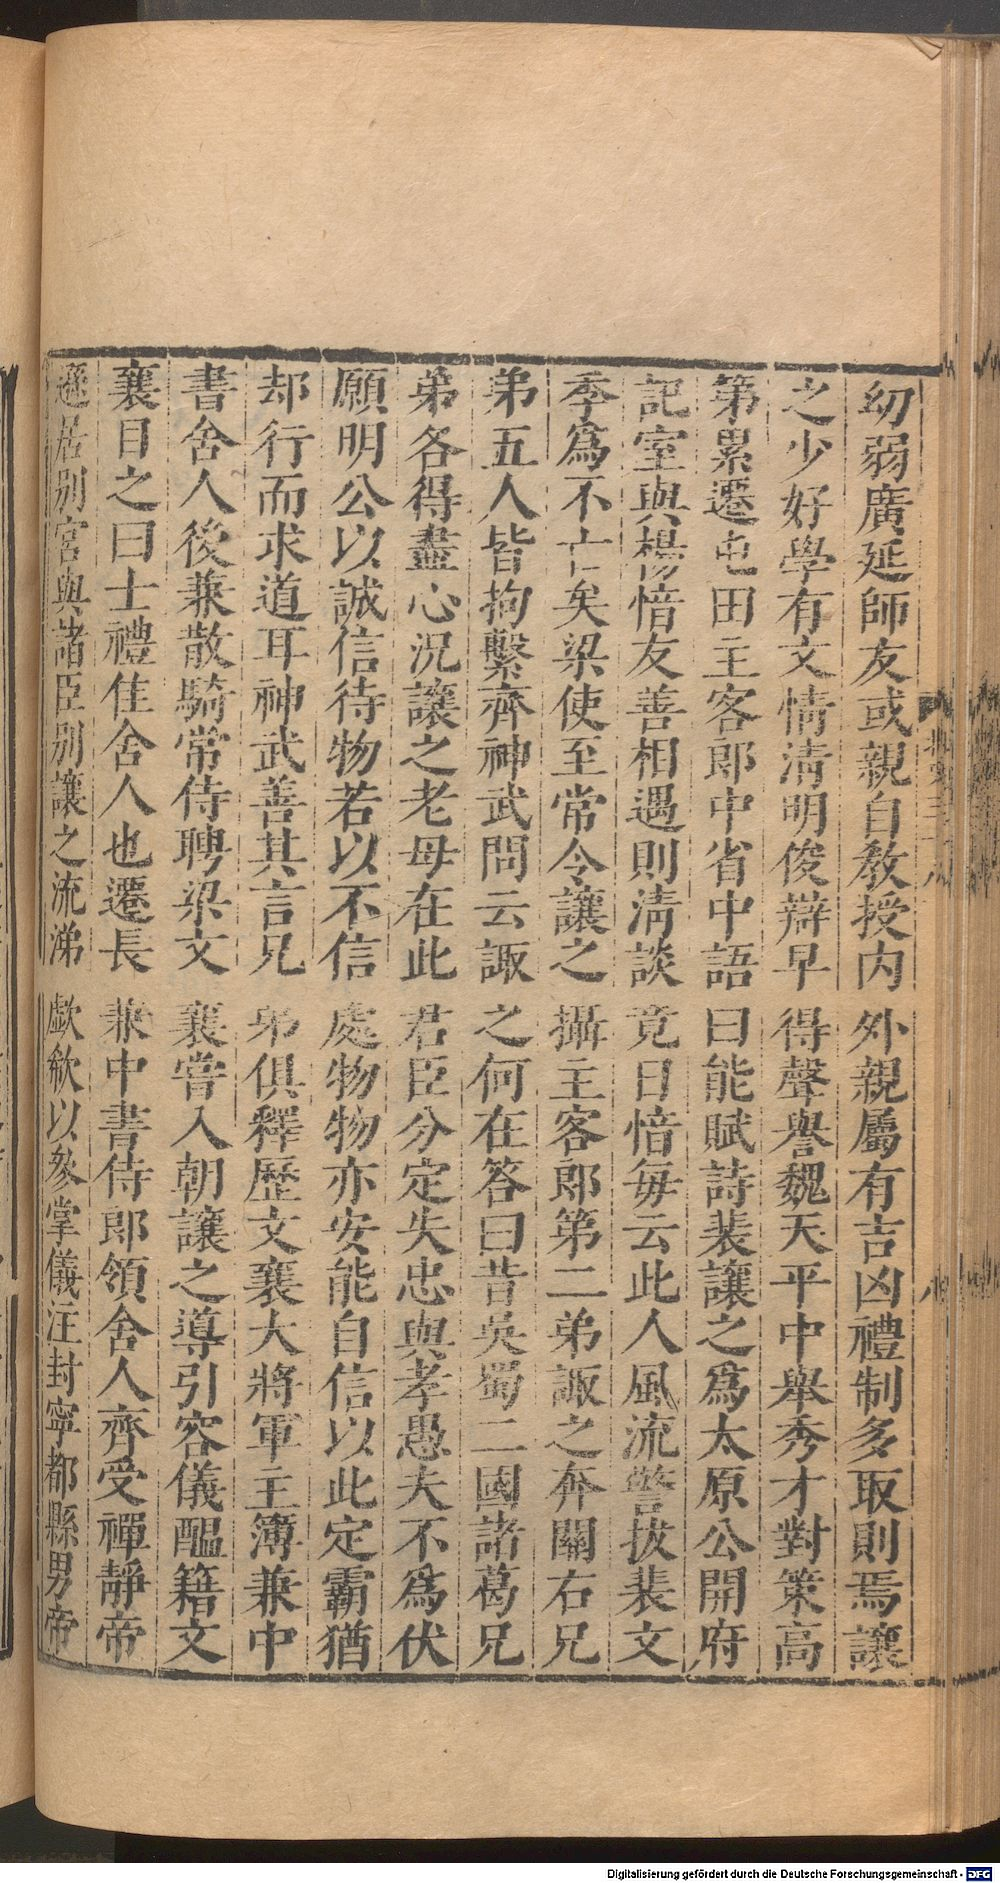 幼弱廣延師友或親自敎授内外親屬有吉凶禮制多取則焉讓
之少好學有文情淸明俊辯早得聲譽魏天平中舉秀才對策高
第累遷屯田主客郎中省中語曰能賦詩裴讓之爲太原公開府
記室與楊愔友善相遇則淸談竟日愔每云此人風流警拔裴文
季爲不亡矣梁使至常令讓之攝主客郎第二弟諏之奔關右兄
弟五人皆拘繫齊神武問云諏之何在答曰昔吳蜀二國諸葛兄
弟各得盡心況讓之老母在此君臣分定失忠與孝愚夫不爲伏
願明公以誠信待物若以不信處物物亦安能自信以此定霸猶
却行而求道耳神武善其言兄弟俱釋歷文襄大將軍主簿兼中
書舍人後兼散騎常侍聘梁文襄嘗入朝讓之導引容儀醞籍文
襄目之曰士禮佳舍人也遷長兼中書侍郎領舍人齊受禪靜帝
遜居別宮與諸臣別讓之流涕歔欷以叅掌儀注封寧都縣男帝
八
Digitalisierung gefördert durch die Deutsche Forschungsgemeinschaft - DFG